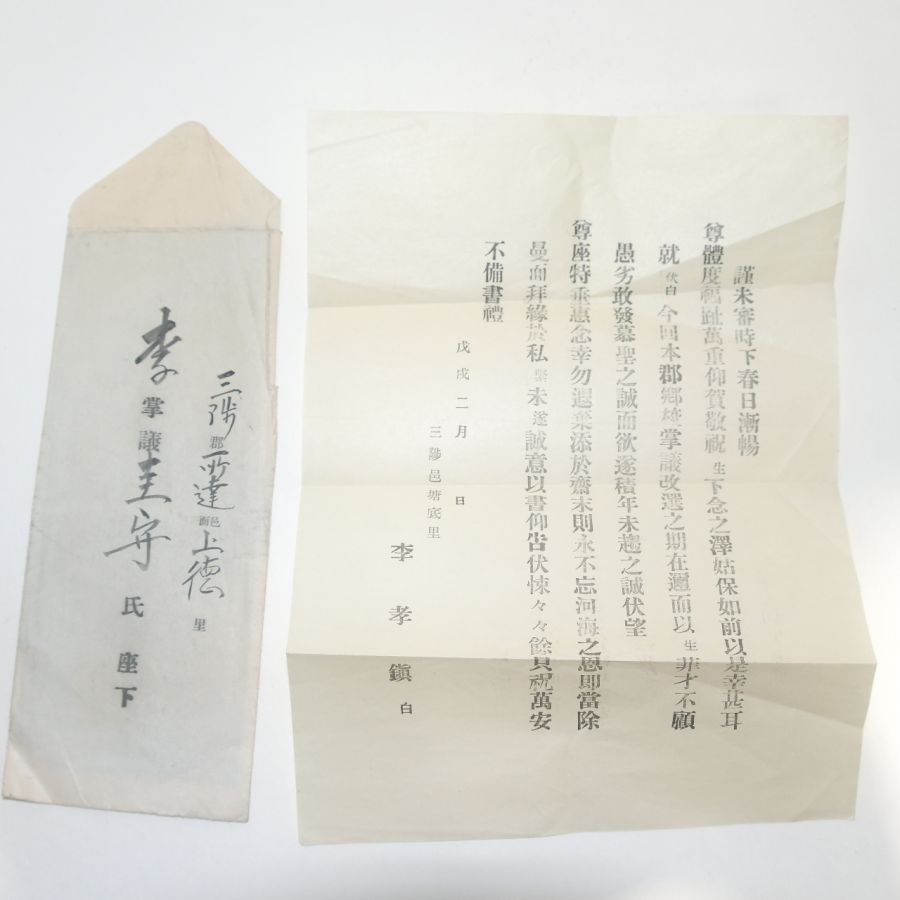 謹未審時下春日漸暢
尊體度福趾萬重仰賀敬祝生下念之澤姑保如前以是幸甚耳
就伏白今回本郡鄕校掌議改選之期在邇而以生菲才不顧
愚劣敢發慕聖之誠而欲遂積年未趨之誠伏望
尊座特垂惠念幸勿遐棄添於齋末則永不忘河海之恩即當除
曼面拜緣於私未遂誠意以書仰告伏悚々々餘只祝萬安
不備書禮
戊戌二月 日
三陟邑塘底里
李孝鎭白
三陟郡所達面上德里
李掌議圭守氏座下